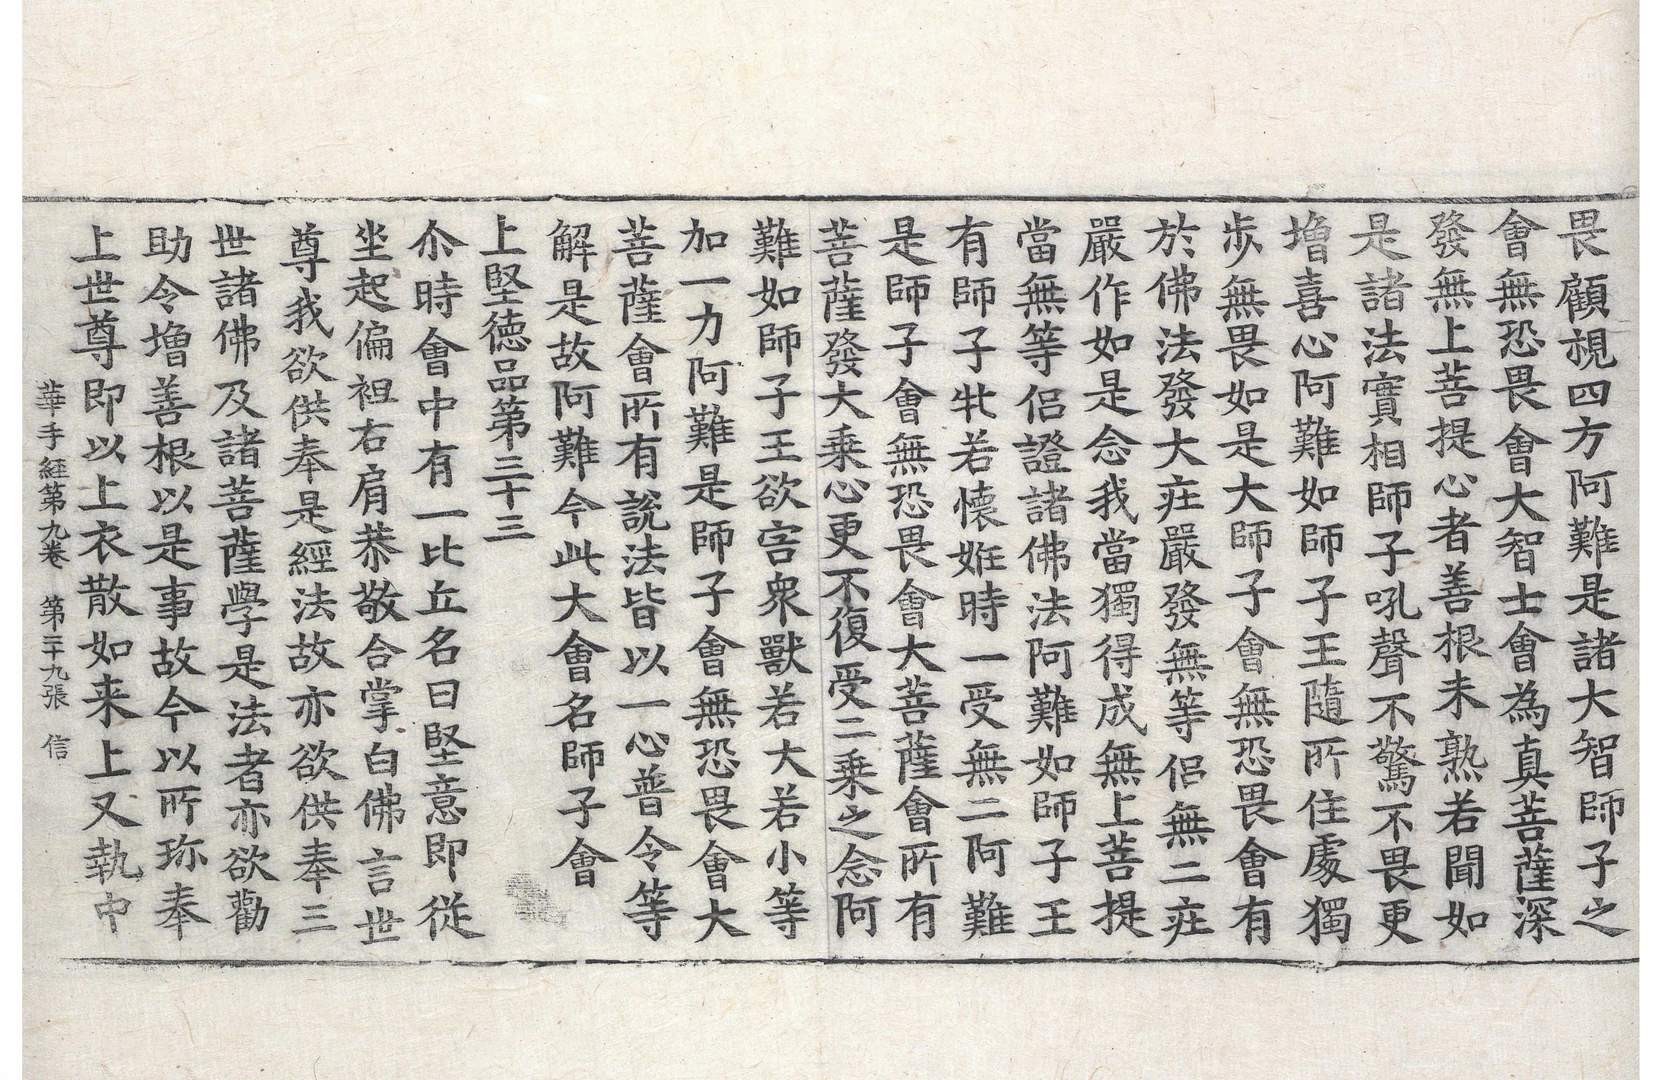 畏顧視四方阿難是諸大智師子之
會無恐畏會大智士會為真菩薩深
發無上菩提心者善根未熟若聞如
是諸法實相師子吼聲不驚不畏更
增喜心阿難如師子王隨所住處獨
步無畏如是大師子會無恐畏會有
於佛法發大疘嚴發無等侶無二疘
嚴作如是念我當獨得成無上菩提
當無等侶證諸佛法阿難如師子王
有師子牝若懷姙時一受無二阿難
是師子會無恐畏會大菩薩會所有
菩薩發大乘心更不復受二乘之念阿
難如師子王欲害衆獸若大若小等
加一力阿難是師子會無恐畏會大
菩薩會所有說法皆以一心普令等
解是故阿難今此大會名師子會
上堅德品第三十三
尒時會中有一比丘名曰堅意即從
坐起偏袒右肩恭敬合掌白佛言世
尊我欲供奉是經法故亦欲供奉三
世諸佛及諸菩薩學是法者亦欲勸
助令增善根以是事故今以所珎奉
上世尊即以上衣散如来上又執中
華手經第九卷 第二十九張 信